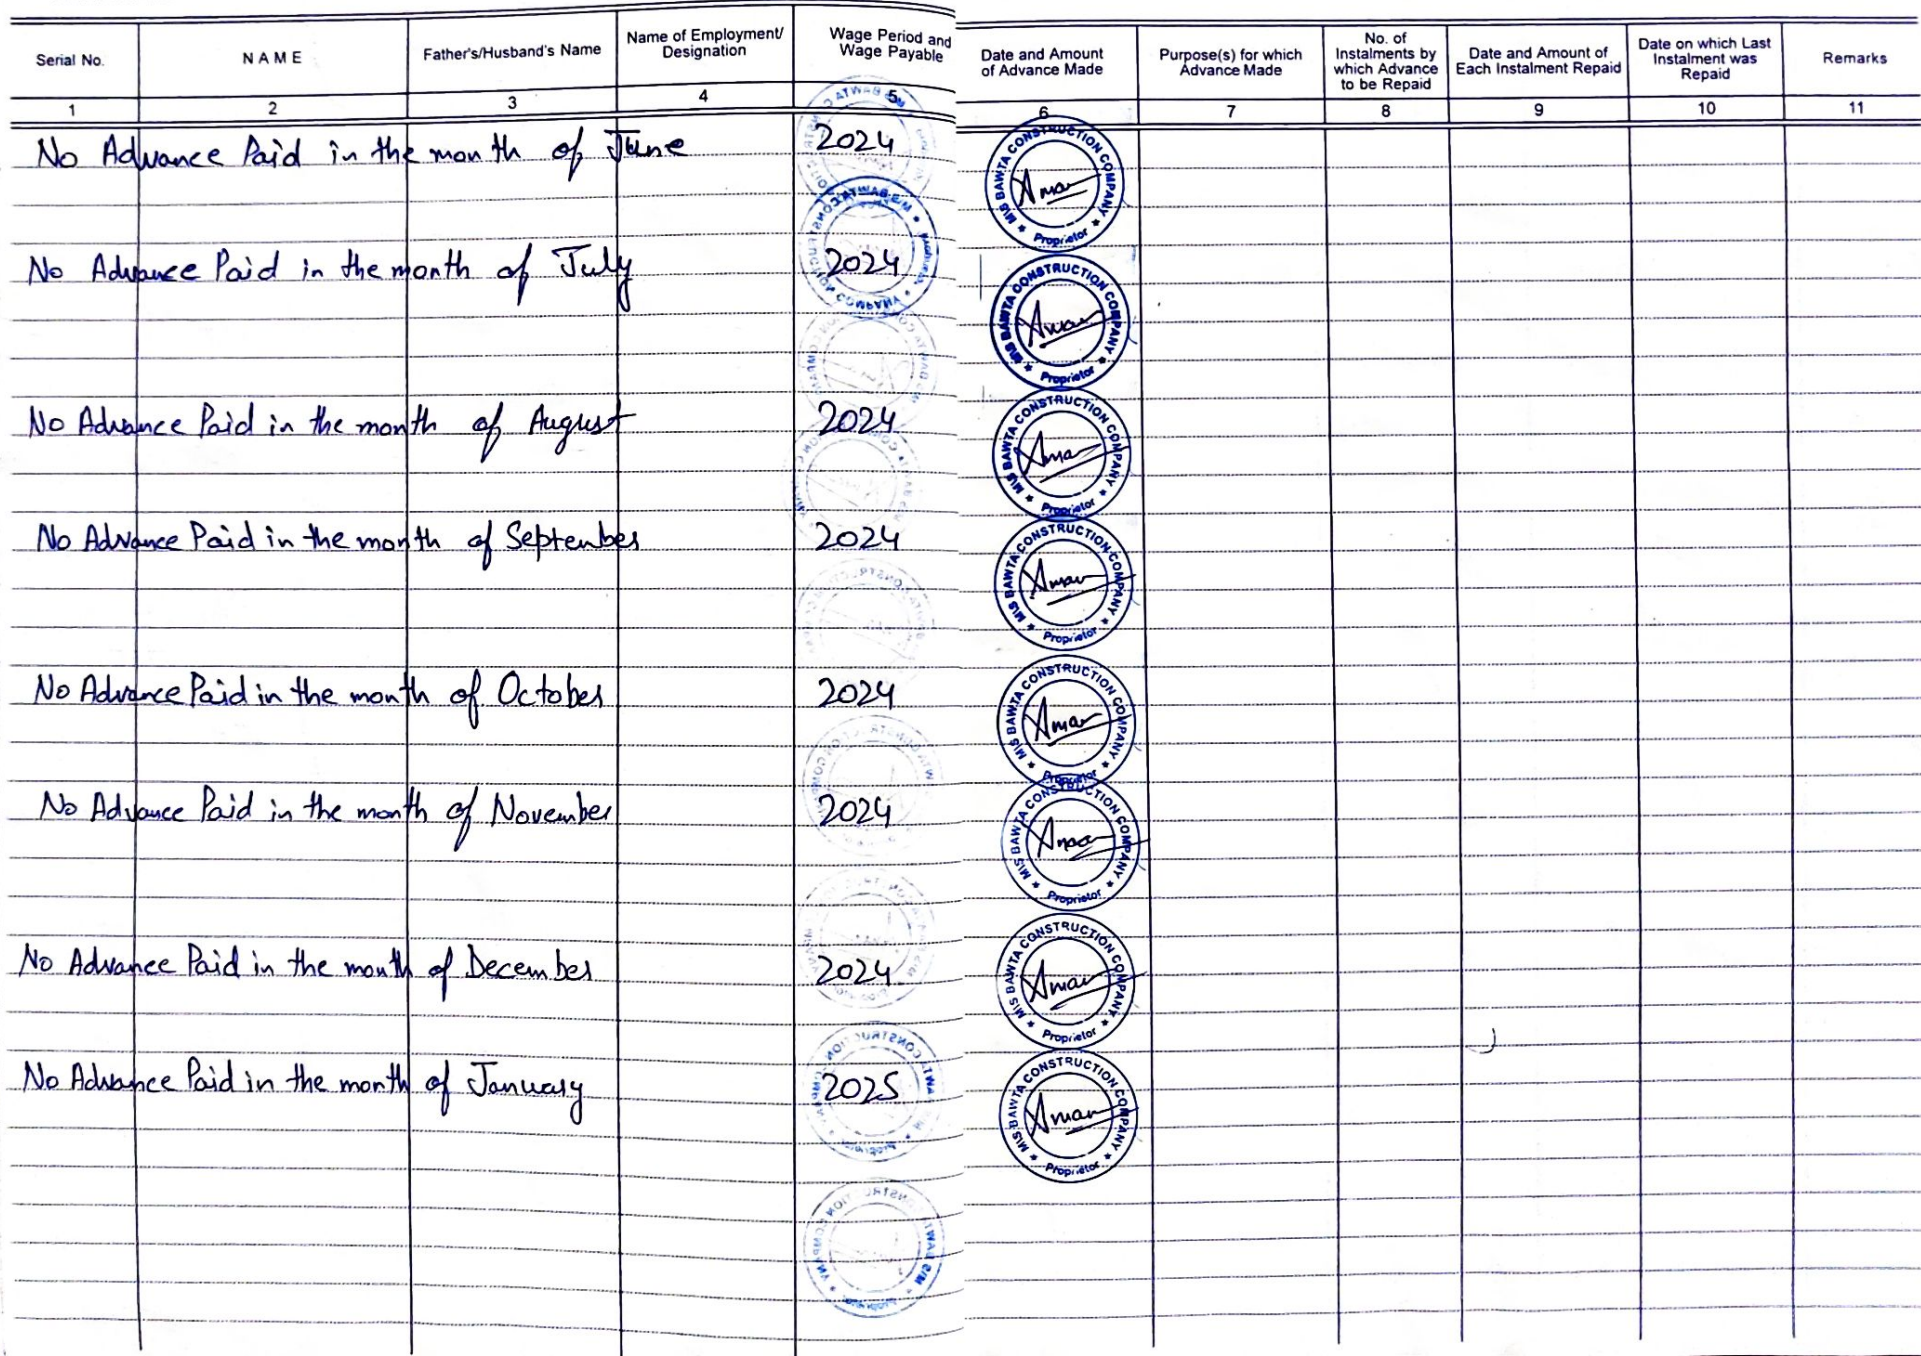 Serial No. NAME Father's/Husband's Name Name of Employment/ Designation Wage Period and Wage Payable Date and Amount of Advance Made Purpose(s) for which Advance Made No. of Instalments by which Advance to be Repaid Date and Amount of Each Instalment Repaid Date on which Last Instalment was Repaid Remarks
1 2 3 4 5 6 7 8 9 10 11
No Advance Paid in the month of June 2024
M/S BAWTA CONSTRUCTION COMPANY
Aman
Proprietor
No Advance Paid in the month of July 2024
M/S BAWTA CONSTRUCTION COMPANY
Aman
Proprietor
No Advance Paid in the month of August 2024
M/S BAWTA CONSTRUCTION COMPANY
Aman
Proprietor
No Advance Paid in the month of September 2024
M/S BAWTA CONSTRUCTION COMPANY
Aman
Proprietor
No Advance Paid in the month of October 2024
M/S BAWTA CONSTRUCTION COMPANY
Aman
Proprietor
No Advance Paid in the month of November 2024
M/S BAWTA CONSTRUCTION COMPANY
Aman
Proprietor
No Advance Paid in the month of December 2024
M/S BAWTA CONSTRUCTION COMPANY
Aman
Proprietor
No Advance Paid in the month of January 2025
M/S BAWTA CONSTRUCTION COMPANY
Aman
Proprietor